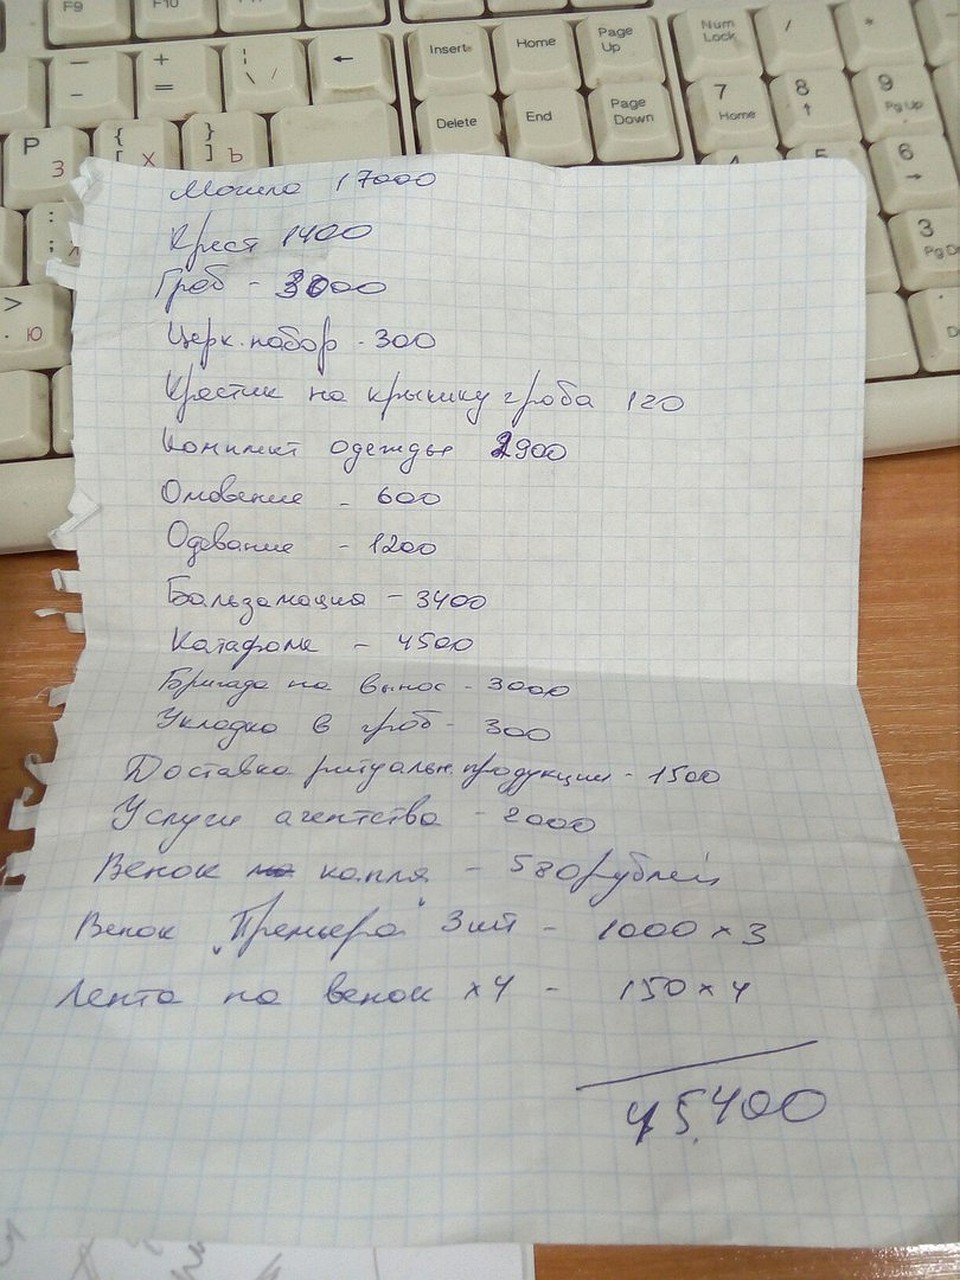 F9
F10
Insert
Home
Page Up
Num Lock
/
*
Delete
End
Page Down
7 Home
8 ↑
9 Pg Up
Р З
{ [ Х
} ] Ъ
6 →
3
> . Ю
Могила 17000
Крест 1400
Гроб - 3000
Церк. набор - 300
Крестик на крышку гроба 120
Комплект одежды 2900
Омовение - 600
Одевание - 1200
Бальзамация - 3400
Катафалк - 4500
Бригада на вынос - 3000
Укладка в гроб - 300
Доставка ритуальн. продукции - 1500
Услуги агентства - 2000
Венок капля - 580 рублей
Венок "Премьера" 3 шт - 1000 × 3
Лента на венок ×4 - 150 × 4
45.400